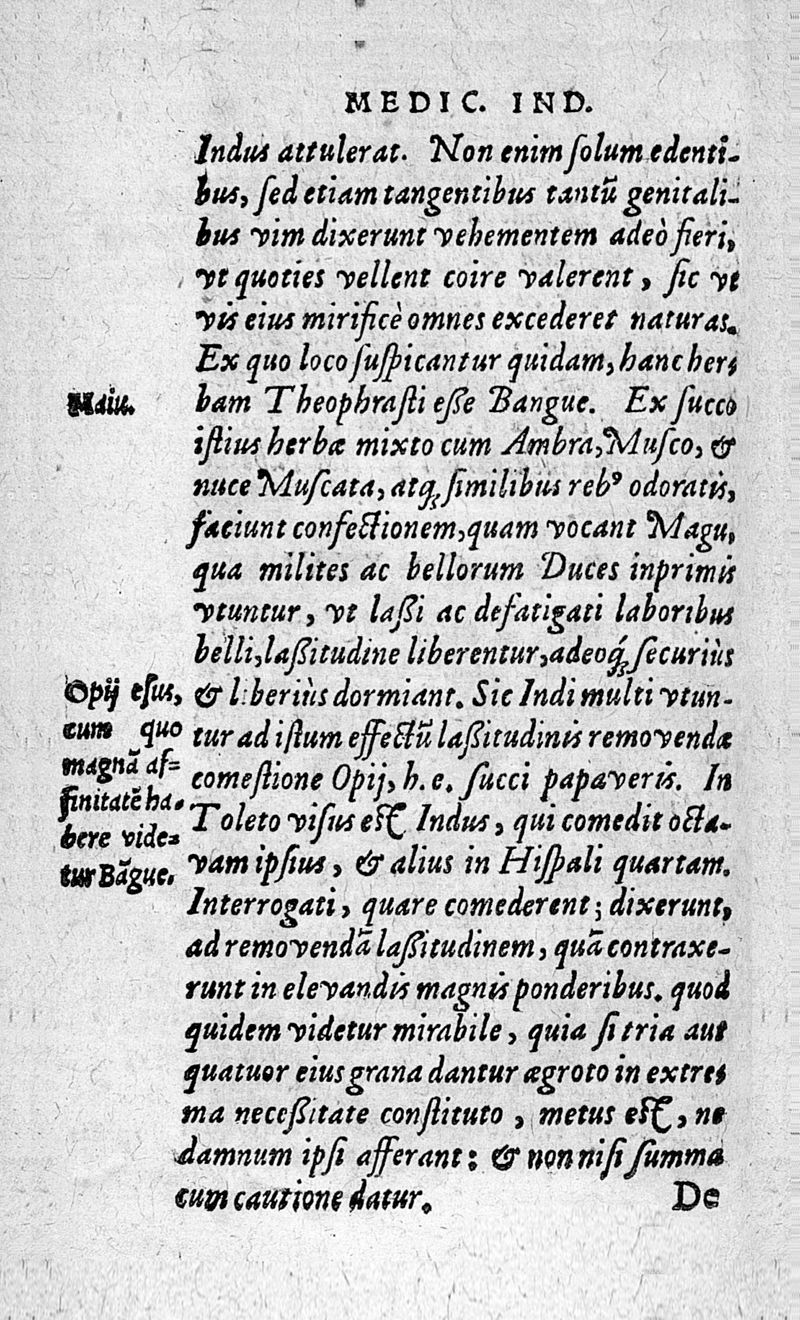 MEDIC. IND.
Indus attulerat. Non enim ſolum edenti-
bus, ſed etiam tangentibus tantũ genitali-
bus vim dixerunt vehementem adeò fieri,
vt quoties vellent coire valerent, ſic vt
vis eius mirificè omnes excederet naturas.
Ex quo loco ſuſpicantur quidam, hanc her-
bam Theophraſti eſſe Bangue. Ex ſucco
iſtius herbæ mixto cum Ambra, Muſco, &
nuce Muſcata, atq; ſimilibus rebꝰ odoratis,
faciunt confectionem, quam vocant Magu,
qua milites ac bellorum Duces inprimis
vtuntur, vt laßi ac defatigati laboribus
belli, laßitudine liberentur, adeoq́; ſecuriùs
& liberiùs dormiant. Sic Indi multi vtun-
tur ad iſtum effectũ laßitudinis removendæ
comeſtione Opij, h. e. ſucci papaveris. In
Toleto viſus eſt Indus, qui comedit octa-
vam ipſius, & alius in Hiſpali quartam.
Interrogati, quare comederent; dixerunt,
ad removendã laßitudinem, quã contraxe-
runt in elevandis magnis ponderibus. quod
quidem videtur mirabile, quia ſi tria aut
quatuor eius grana dantur ægroto in extre-
ma neceßitate conſtituto, metus eſt, ne
damnum ipſi afferant: & non niſi ſumma
cum cautione datur.
De
Opij eſus,
cum quo
magnã af-
finitatẽ ha-
bere vide-
tur Bãgue.